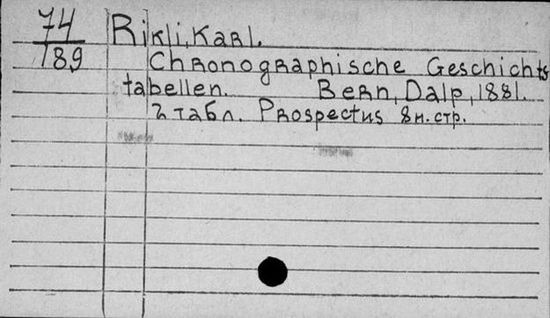 74
189
Rikli, Karl.
Chronographische Geschichts
tabellen. Bern, Dalp, 1881.
2 табл. Prospectus 8 н. стр.